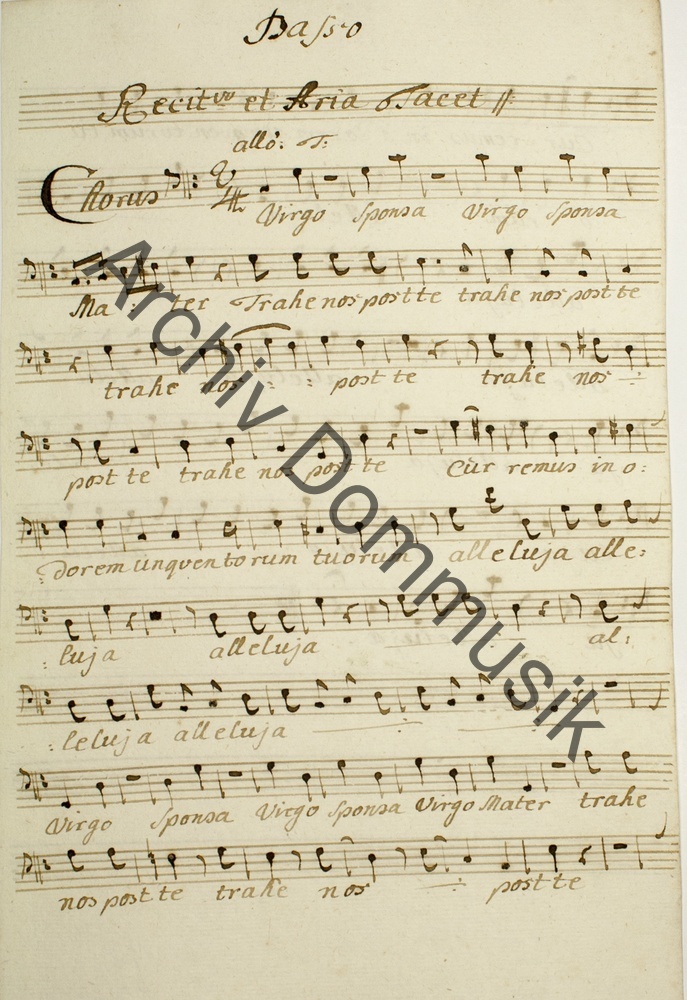 Basso
Recit.vo et Aria Tacet //
allô: T:
Chorus 2/4 Virgo Sponsa Virgo Sponsa
Ma : ter Trahe nos post te trahe nos post te
trahe nos : : post te trahe nos
post te trahe nos post te Cùr remus in o:
:dorem unqventorum tuorum alleluja alle:
:luja alleluja al:
:leluja alleluja
Virgo Sponsa Virgo Sponsa Virgo Mater trahe
nos post te trahe nos post te
Archiv Dommusik